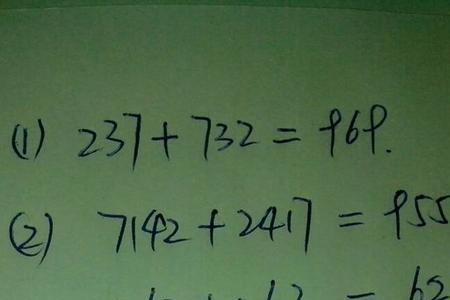 (1) 237+732=969.
(2) 7142+2417=955